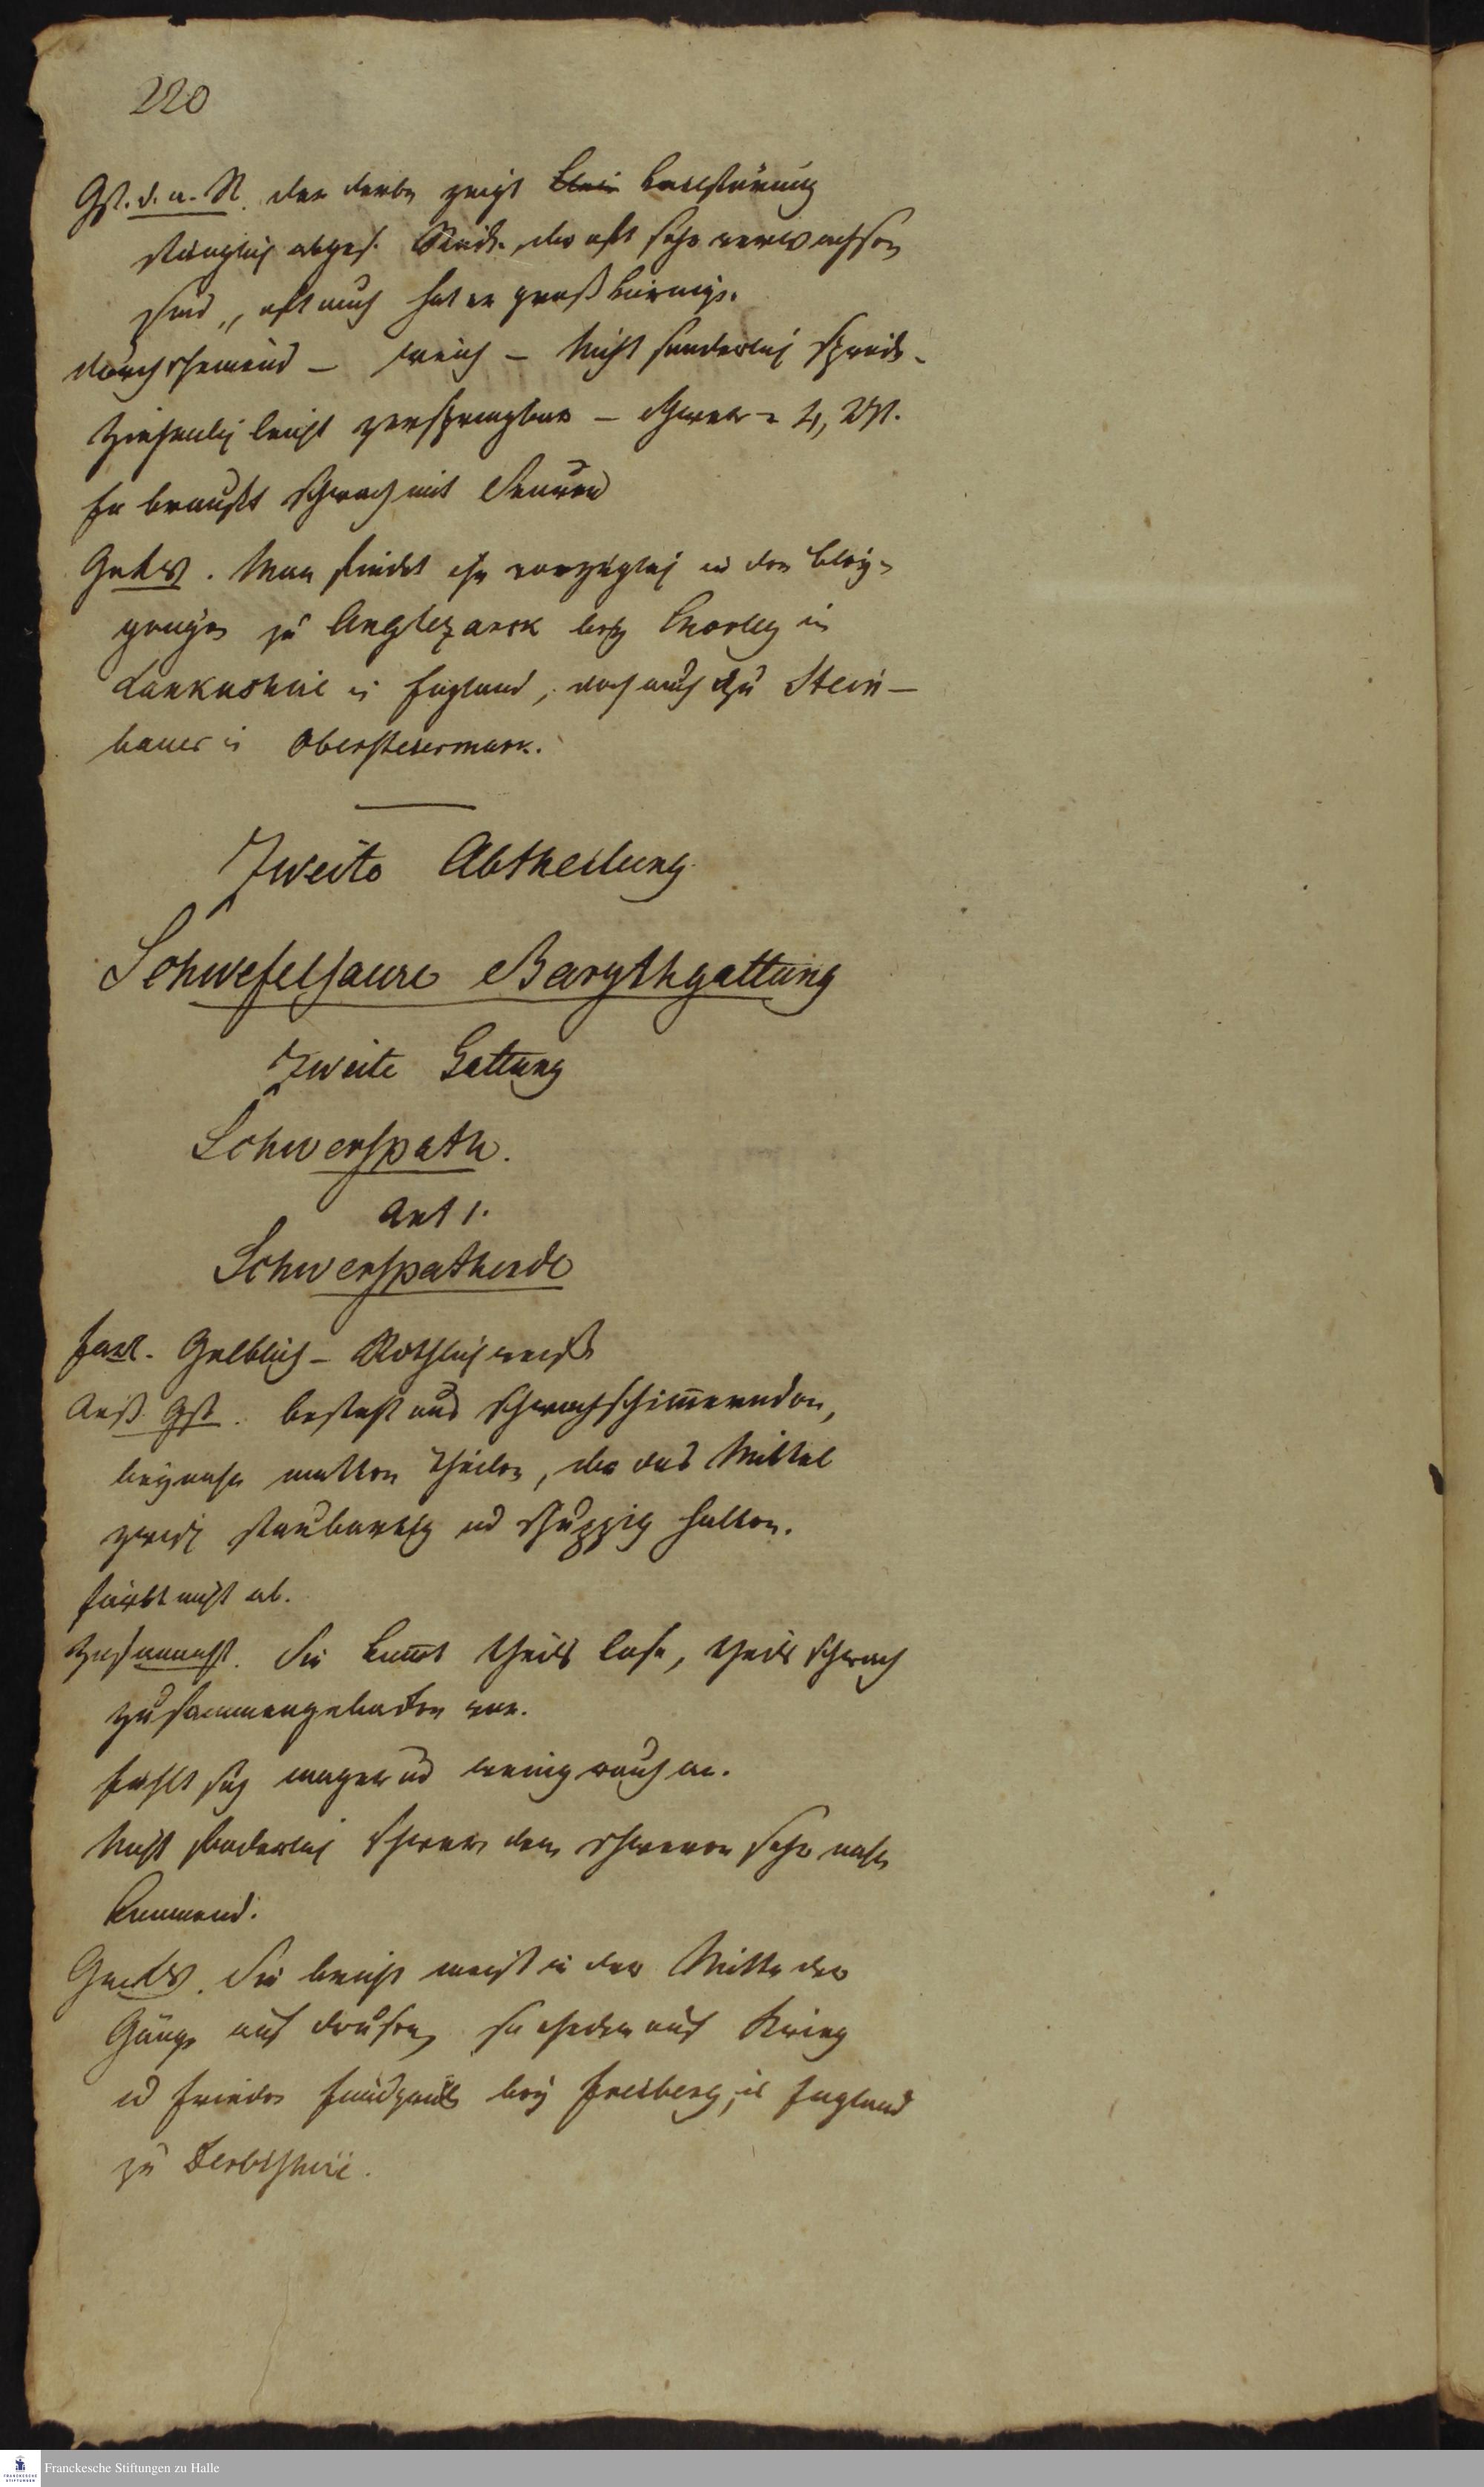 220
Gst. d. a. St. der derbe zeigt
stänglich abges. Stück. die oft sehr verwachsen
sind, oft auch hat er großkörnige.
durchscheinend – weich – Nicht sonderlich spröde –
Ziehmlich leicht zerspringbar – schwer =
Er braußt schwach mit Säuren
Geb. Man findet ihn vorzüglich in den Bley-
gängen zu Anglezark bey Chorley in
Lankashire in England, doch auch zu Stein-
bauer in Obersteiermark.
Zweite Abtheilung
Schwefelsaure Barythgattung
Zweite Gattung
Schwerspath.
Art 1.
Schwerspatherde
Farb. Gelblich – Röthlichweiß
Aeuß. Gst. besteht aus schwachschimmernden,
beynahe matten Theilen, die das Mittel
zwisch staubartig und schuppig halten.
färbt nicht ab.
Zusammenh. Sie kommt theils lose, theils schwach
zusammengebacken vor.
fühlt sich mager und wenig rauh an.
Nicht sonderlich schwer dem schweren sehr nahe
kommend.
Geb. Sie bricht meist in der Mitte der
Gänge auf Drusen, so ehedem auf Krieg
und Frieden Fundgrube bey Freiberg, in England
zu Derbishire.
Franckesche Stiftungen zu Halle